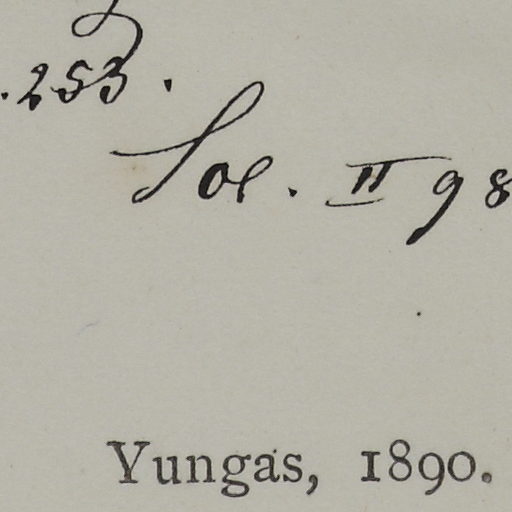 .253.
Soc. II 98
Yungas, 1890.